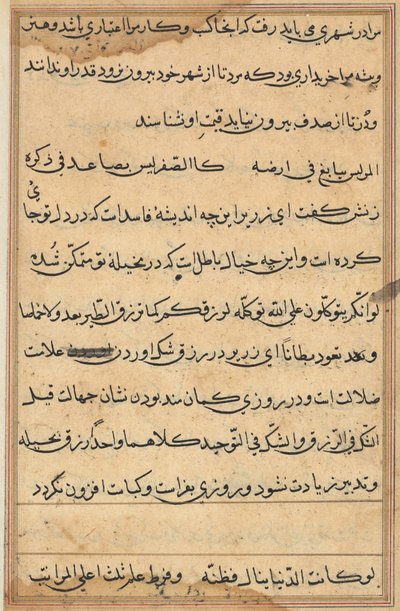 مرا در شهری می باید رفت که آنجا کسب و کار مرا اعتباری باشد و هنر
و پیشه مرا خریداری بود که مرد تا از شهر خود بیرون نرود قدر او ندانند
و دُر تا از صدف بیرون نیاید قیمت او نشناسند
المرلیس ببالغ فی ارضه کالصقر لیس بصاعد فی ذکره
زنش گفت ای زریر این چه اندیشهٔ فاسد است که در دل تو جای
کرده است و این چه خیال باطل است که در مخیلهٔ تو متمکن شده
لو انکم یتوکلون علی الله توکله لرزقکم کما ترزق الطیر بغدو لا خماصا
تعود بطاناً ای زریر در رزق شک آوردن علامت
ضلالت است و در روزی کمان مند بودن نشان جهالت قیل
الشک فی الرزق و الشک فی التوحید کلاهما واحد رزق بحیله
و تدبیر زیادت نشود و روزی بفراست و کیاست افزون نگردد
لو کانت الدنیا ینال بفطنة وفرط علی المراتب